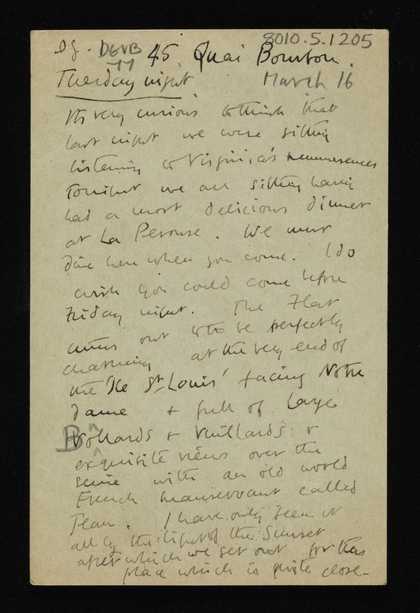 Dg. DGVB 8010.5.1205
11
45, Quai Bourbon.
Tuesday night March 16
It's very curious to think that
last night we were sitting
listening to Virginia's reminiscences
Tonight we are sitting having
had a most delicious dinner
at La Perouse. We must
dine here when you come. I do
wish you could come before
Friday night. The Flat
turns out to be perfectly
charming at the very end of
the Ile St. Louis' facing Notre
Dame & full of large
Bollards & Vuillards &
exquisite views over the
Seine with an old world
French manservant called
Jean. I have only seen it
all by the light of the Sunset
after which we set out for this
place which is quite close -